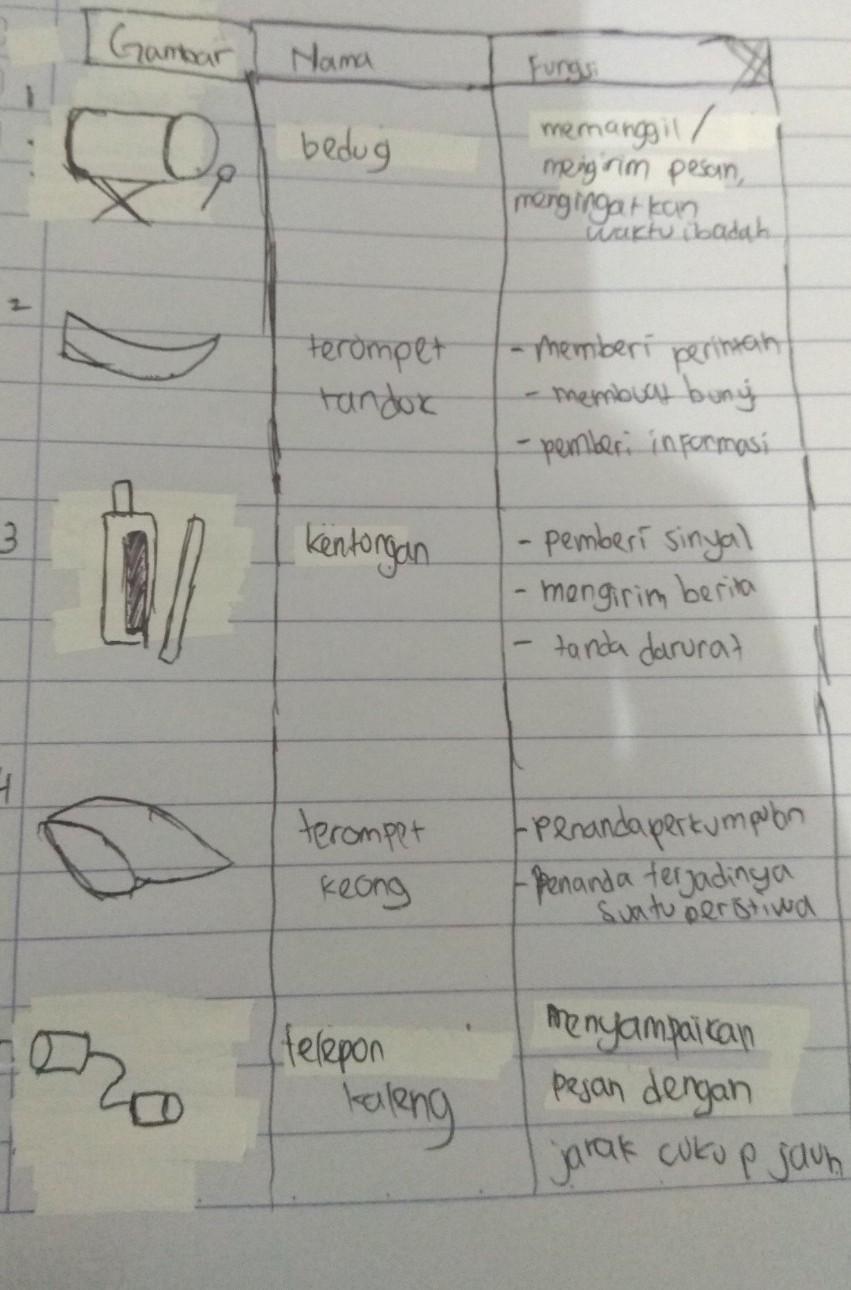 Gambar Nama Fungsi
1
bedug memanggil /
mengirim pesan,
mengingatkan
waktu ibadah
2
terompet - memberi perintah
tandok - membuat bunyi
- pemberi informasi
3 kentongan - pemberi sinyal
- mengirim berita
- tanda darurat
4
terompet - penanda perkumpulan
keong - Penanda terjadinya
suatu peristiwa
telepon menyampaikan
kaleng pesan dengan
jarak cukup jauh